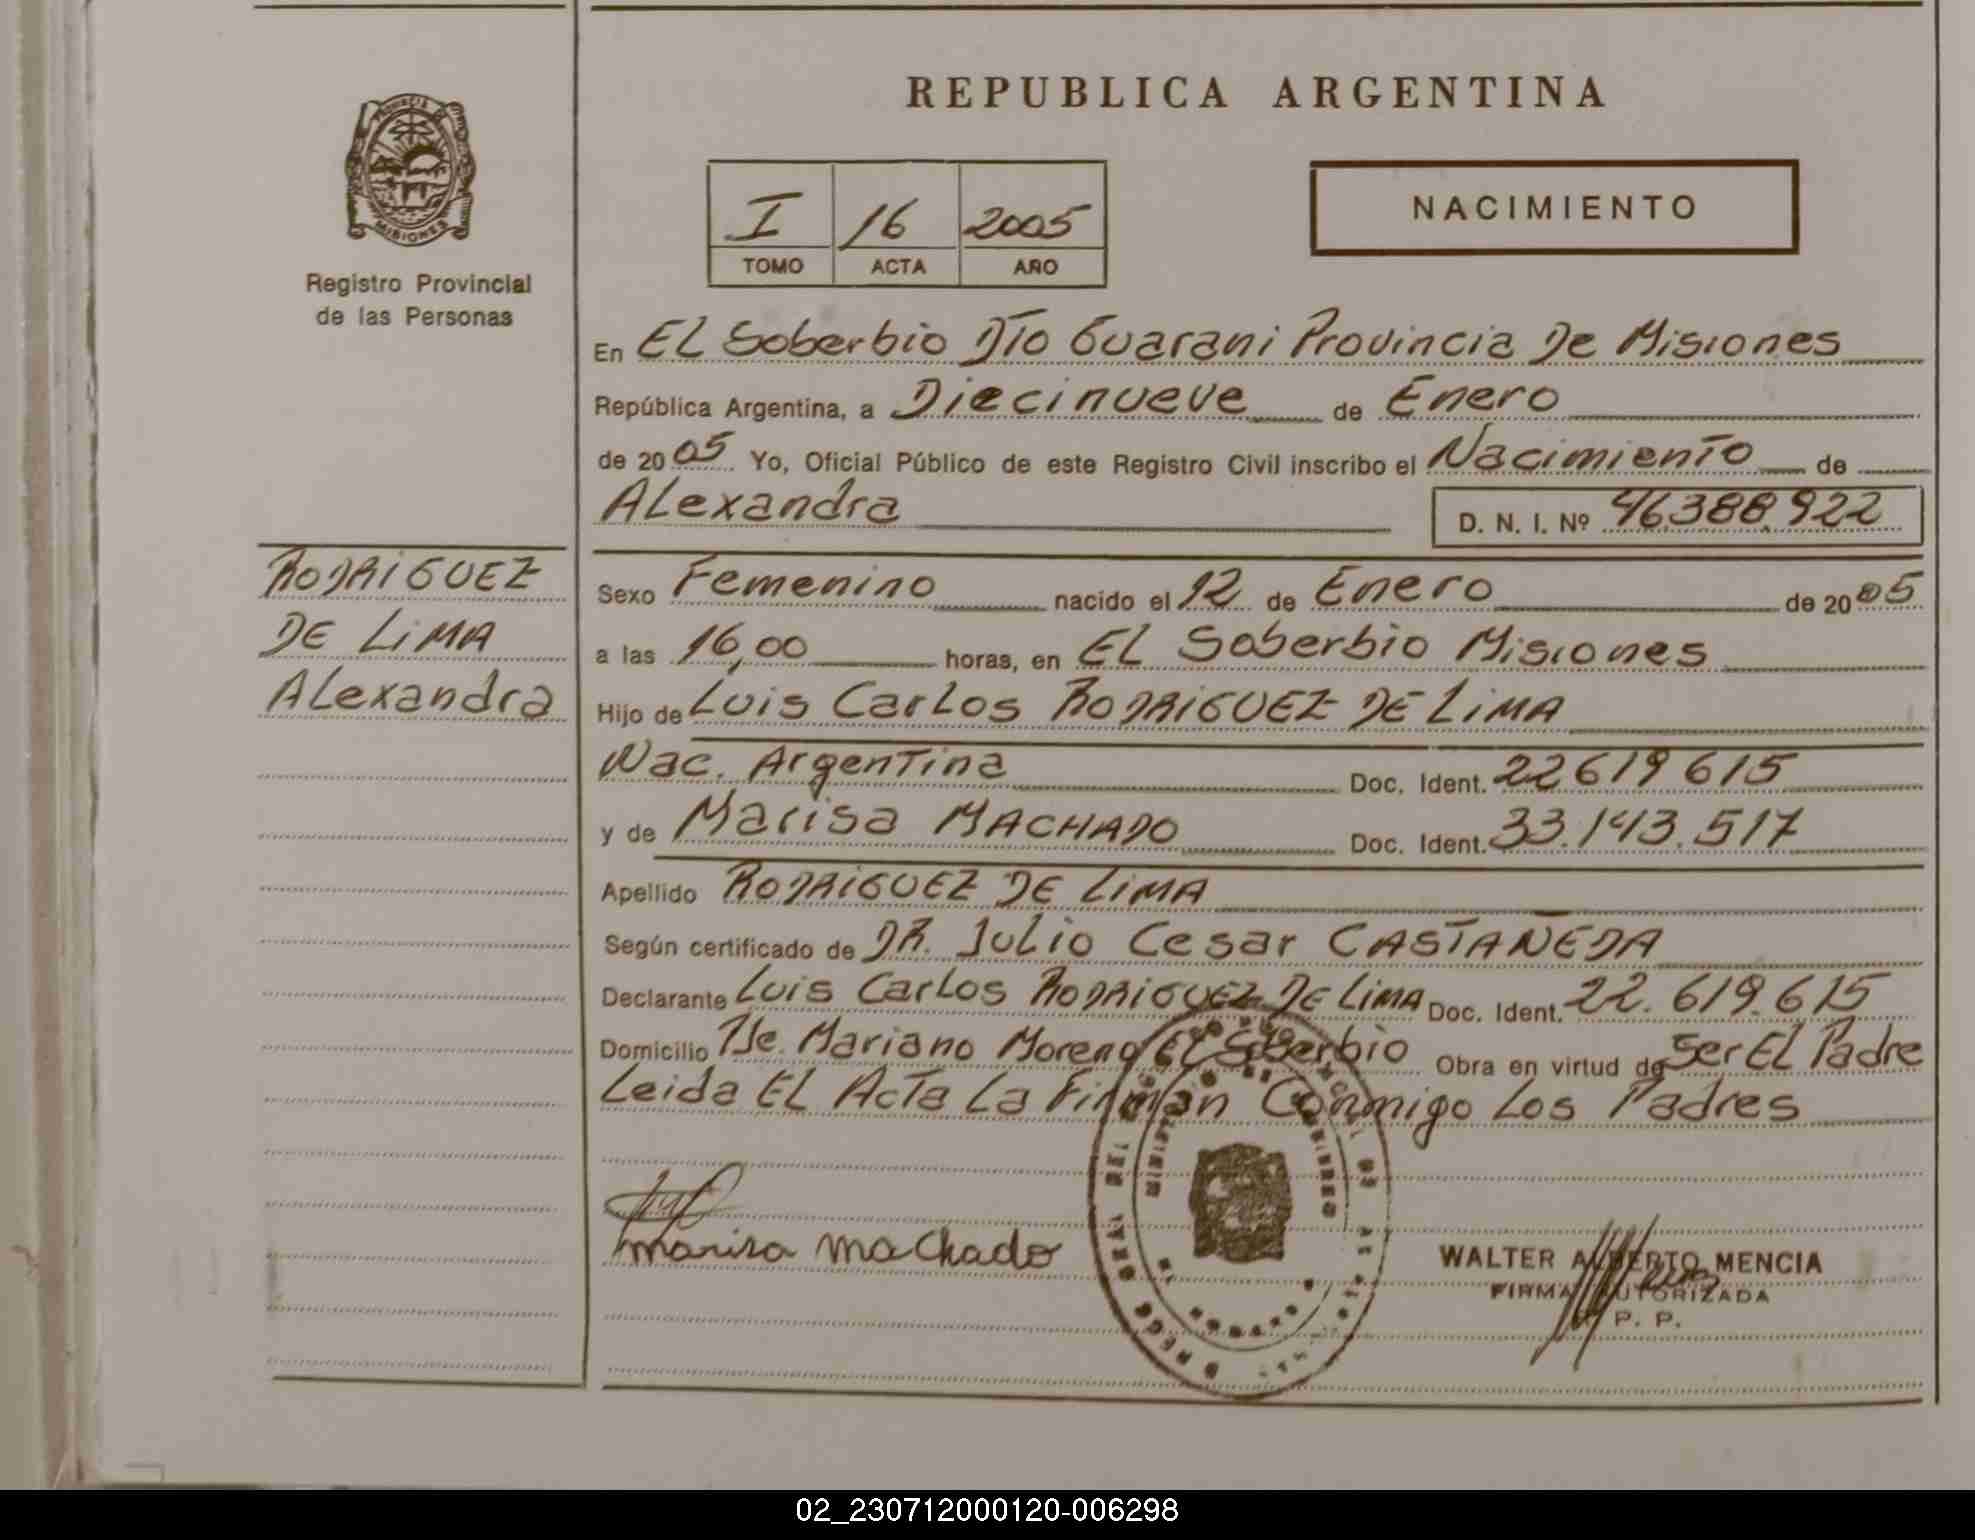 REPUBLICA ARGENTINA
PROVINCIA
MISIONES
Registro Provincial
de las Personas
I 16 2005
TOMO ACTA AÑO
NACIMIENTO
En EL Soberbio DTo Guarani Provincia De Misiones
República Argentina, a Diecinueve de Enero
de 2005 Yo, Oficial Público de este Registro Civil inscribo el Nacimiento de
ALexandra D. N. I. Nº 46388.922
RODRIGUEZ
DE LiMA
ALexandra
Sexo Femenino nacido el 12 de Enero de 2005
a las 16,00 horas, en EL Soberbio Misiones
Hijo de Luis Carlos RODRiGUEZ DE LiMA
Nac. Argentina Doc. Ident. 22619615
y de Marisa MACHADO Doc. Ident. 33.143.517
Apellido RODRiGUEZ DE LiMA
Según certificado de DR. Julio Cesar CASTAÑEDA
Declarante Luis Carlos RODRiGUEZ DE LiMA Doc. Ident. 22.619.615
Domicilio Mariano Moreno EL Soberbio Obra en virtud de Ser EL Padre
Leida EL Acta La Firman Conmigo Los Padres
marisa machado
WALTER ALBERTO MENCIA
FIRMA AUTORIZADA
P. P.
02_230712000120-006298